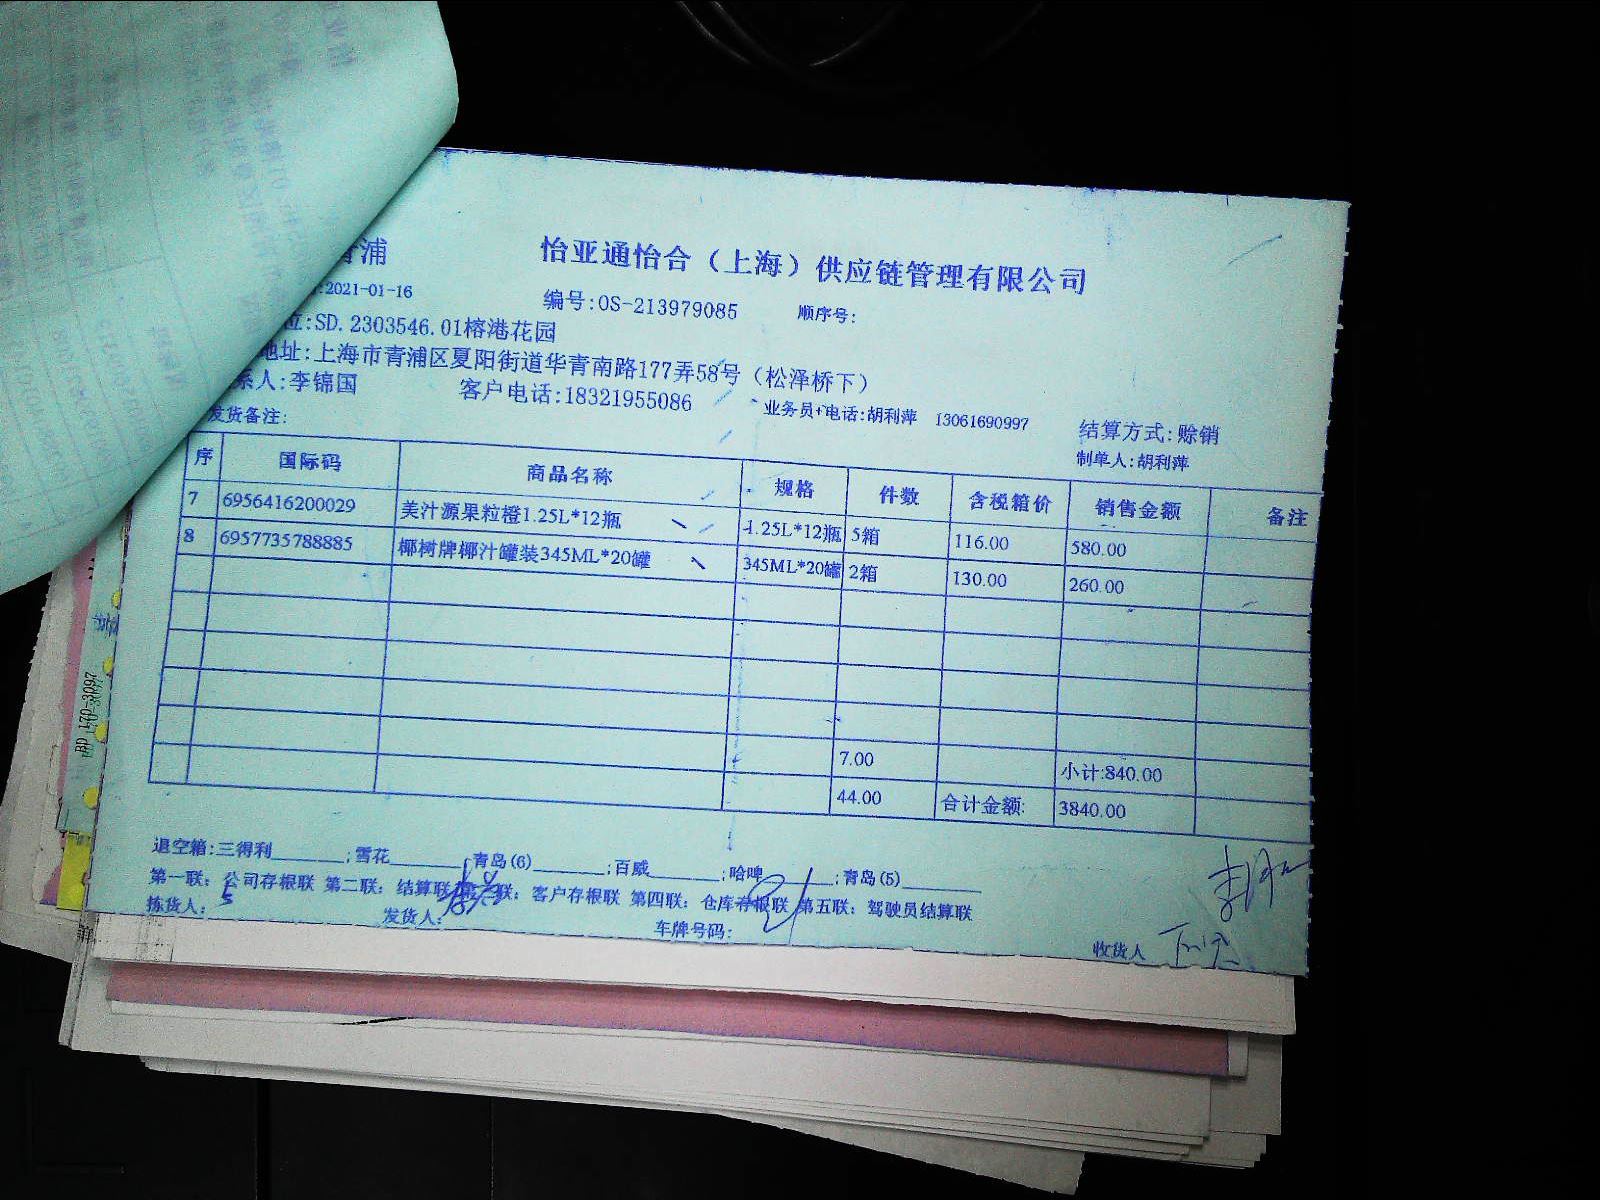 青浦 怡亚通怡合（上海）供应链管理有限公司
:2021-01-16 编号:OS-213979085 顺序号:
位:SD.2303546.01榕港花园
地址:上海市青浦区夏阳街道华青南路177弄58号（松泽桥下）
系人:李锦国 客户电话:18321955086 业务员+电话:胡利萍 13061690997 结算方式:赊销
发货备注: 制单人:胡利萍
序 国际码 商品名称 规格 件数 含税箱价 销售金额 备注
7 6956416200029 美汁源果粒橙1.25L*12瓶 1.25L*12瓶 5箱 116.00 580.00
8 6957735788885 椰树牌椰汁罐装345ML*20罐 345ML*20罐 2箱 130.00 260.00
7.00 小计:840.00
44.00 合计金额: 3840.00
退空箱:三得利_______;雪花_______;青岛(6)_______;百威_______;哈啤_______;青岛(5)_______
第一联：公司存根联 第二联：结算联 第三联：客户存根联 第四联：仓库存根联 第五联：驾驶员结算联
拣货人： 发货人： 车牌号码： 收货人
BD 170-3097